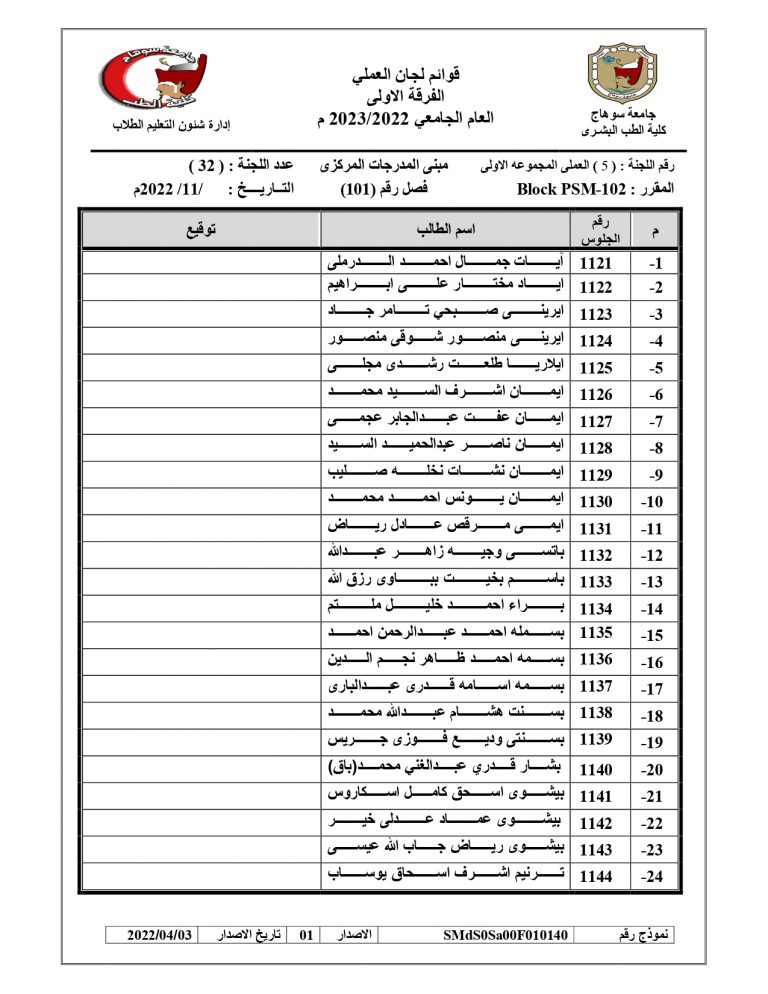 جامعة سوهاج
كلية الطب
إدارة شئون التعليم الطلاب
قوائم لجان العملي
الفرقة الاولى
العام الجامعي 2023/2022 م
جامعة سوهاج
كلية الطب البشرى
رقم اللجنة : ( 5 ) العملى المجموعه الاولى مبنى المدرجات المركزى عدد اللجنة : ( 32 )
المقرر : Block PSM-102 فصل رقم (101) التــاريـــخ : /11/ 2022م
م رقم الجلوس اسم الطالب توقيع
1- 1121 آيـــات جمـــال احمـــد الـــدرملى
2- 1122 ايـــاد مختـــار علـــى ابـــراهيم
3- 1123 ايرينـــى صـــبحي تـــامر جـــاد
4- 1124 ايرينـــى منصـــور شـــوقى منصـــور
5- 1125 ايلاريـــا طلعـــت رشـــدى مجلـــى
6- 1126 ايمـــان اشـــرف الســـيد محمـــد
7- 1127 ايمـــان عفـــت عبـــدالجابر عجمـــى
8- 1128 ايمـــان ناصـــر عبدالحميـــد الســـيد
9- 1129 ايمـــان نشـــات نخلـــه صـــليب
10- 1130 ايمـــان يـــونس احمـــد محمـــد
11- 1131 ايمـــى مـــرقص عـــادل ريـــاض
12- 1132 باتســـى وجيـــه زاهـــر عبـــدالله
13- 1133 باســـم بخيـــت ببـــاوى رزق الله
14- 1134 بـــراء احمـــد خليـــل ملـــتم
15- 1135 بســـمله احمـــد عبـــدالرحمن احمـــد
16- 1136 بســـمه احمـــد ظـــاهر نجـــم الـــدين
17- 1137 بســـمه اســـامه قـــدرى عبـــدالبارى
18- 1138 بســـنت هشـــام عبـــدالله محمـــد
19- 1139 بســـنتى وديـــع فـــوزى جـــريس
20- 1140 بشـــار قـــدري عبـــدالغني محمـــد(باق)
21- 1141 بيشـــوى اســـحق كامـــل اســـكاروس
22- 1142 بيشـــوى عمـــاد عـــدلى خيـــر
23- 1143 بيشـــوى ريـــاض جـــاب الله عيســـى
24- 1144 تـــرنيم اشـــرف اســـحاق يوســـاب
نموذج رقم SMdS0Sa00F010140 الاصدار 01 تاريخ الاصدار 2022/04/03